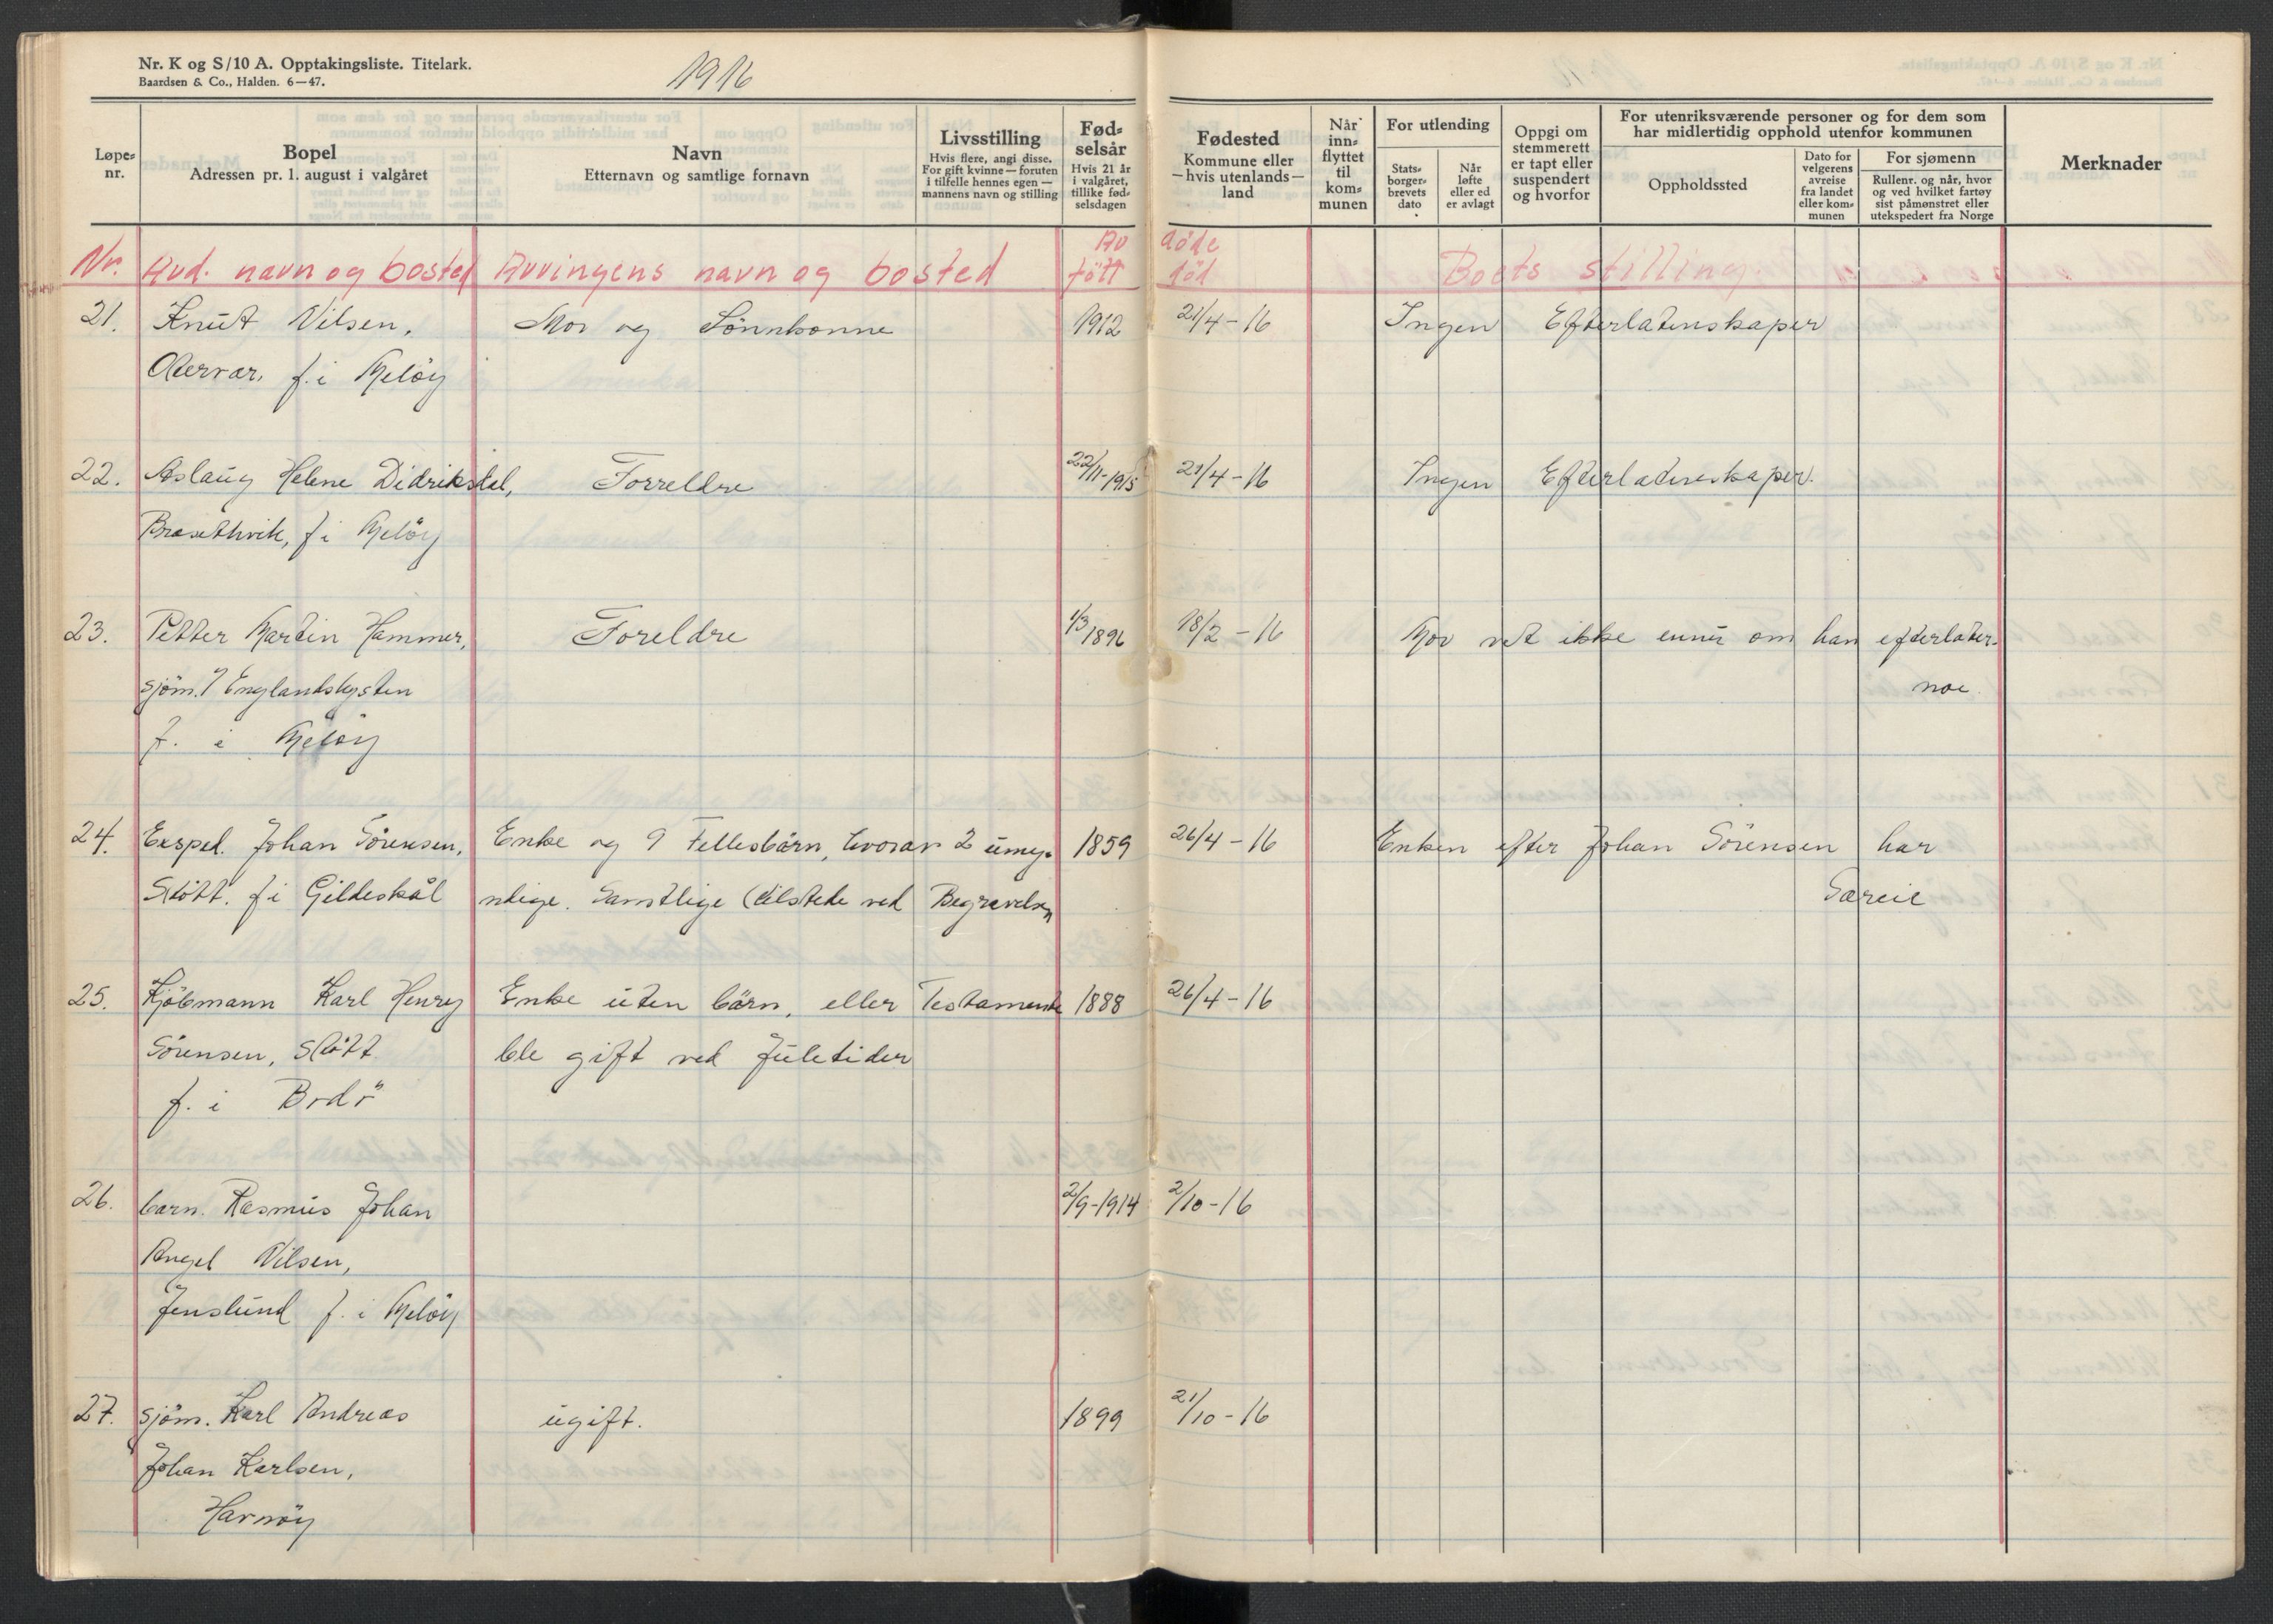 Nr. K og S/10 A. Opptakingsliste. Titelark.
Baardsen & Co., Halden. 6—47.
1916
Løpe-nr.
Bopel
Adressen pr. 1. august i valgåret
Navn
Etternavn og samtlige fornavn
Livsstilling
Hvis flere, angi disse.
For gift kvinne — foruten
i tilfelle hennes egen —
mannens navn og stilling
Fød-
selsår
Hvis 21 år
i valgåret,
tillike fød-
selsdagen
Fødested
Kommune eller
— hvis utenlands —
land
Når
inn-
flyttet
til
kom-
munen
For utlending
Stats-
borger-
brevets
dato
Når
løfte
eller ed
er avlagt
Oppgi om
stemmerett
er tapt eller
suspendert
og hvorfor
For utenriksværende personer og for dem som
har midlertidig opphold utenfor kommunen
Oppholdssted
Dato for
velgerens
avreise
fra landet
eller kom-
munen
For sjømenn
Rullenr. og når, hvor
og ved hvilket fartøy
sist påmønstret eller
utekspedert fra Norge
Merknader
Av døde
Nr. Avd. navn og bosted Arvingens navn og bosted født død Boets stilling
21. Knut Nilsen, Mor og Sönnkonne 1912 21/4-16 Ingen Efterlatenskaper
f. i Melöy
22. Aslaug Helene Didriksdal, Forreldre 22/11-1915 21/4-16 Ingen Efterlatenskaper.
Brasethvik, f i Melöy
23. Petter Martin Hammer, Foreldre 1/3 1896 18/2-16 Mor vet ikke ennu om han efterlater
sjöm. Englandskysten noe.
f. i Melöy
24. Exsped. Johan Sörensen, Enke og 9 Fellesbärn, hvorav 2 umyn- 1859 26/4-16 Enken efter Johan Sörensen har
Stött. f i Gildeskål ndige. Samtlige tilstede ved Begravelsen
25. Kjöbmann Karl Henry Enke uten bärn, eller Testamente 1888 26/4-16
Sörensen, Stött ble gift ved Juletider
f. i Bodö
26. barn. Rasmus Johan 2/9-1914 2/10-16
Angel Nilsen,
Jenslund f. i Melöy
27. sjöm. Karl Andreas ugift. 1899 21/10-16
Johan Karlsen,
Harnöy